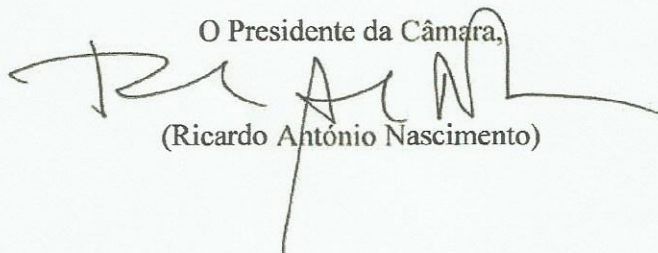 O Presidente da Câmara,
(Ricardo António Nascimento)